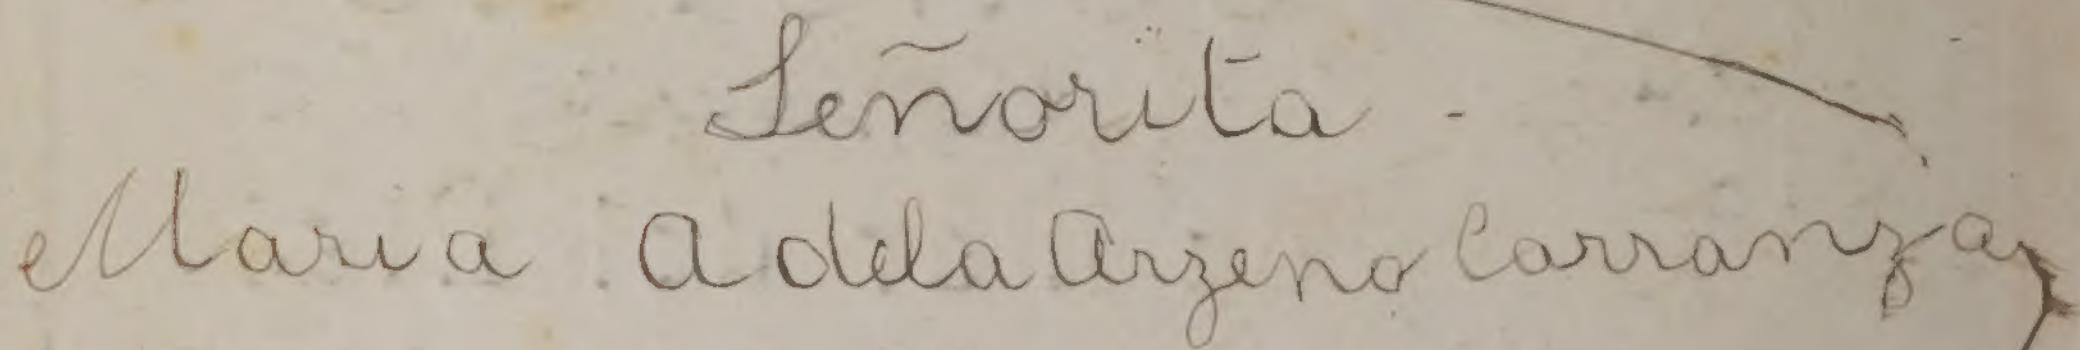 Señorita -
Maria Adela Arzeno Carranza